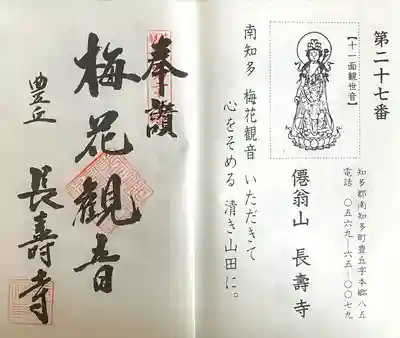 第二十七番
【十一面観世音】
知多郡南知多町豊丘字本郷八五
電話 〇五六九―六五―〇〇七九
僊翁山 長壽寺
南知多 梅花観音 いただきて
心をそめる 清き山田に。
奉讃
梅花観音
豊丘
長壽寺